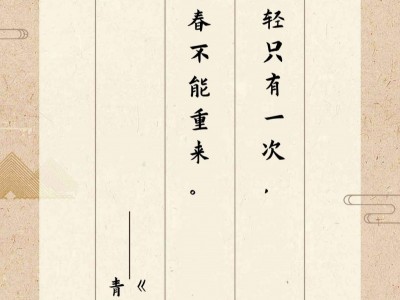 轻只有一次，
春不能重来。
——《
青